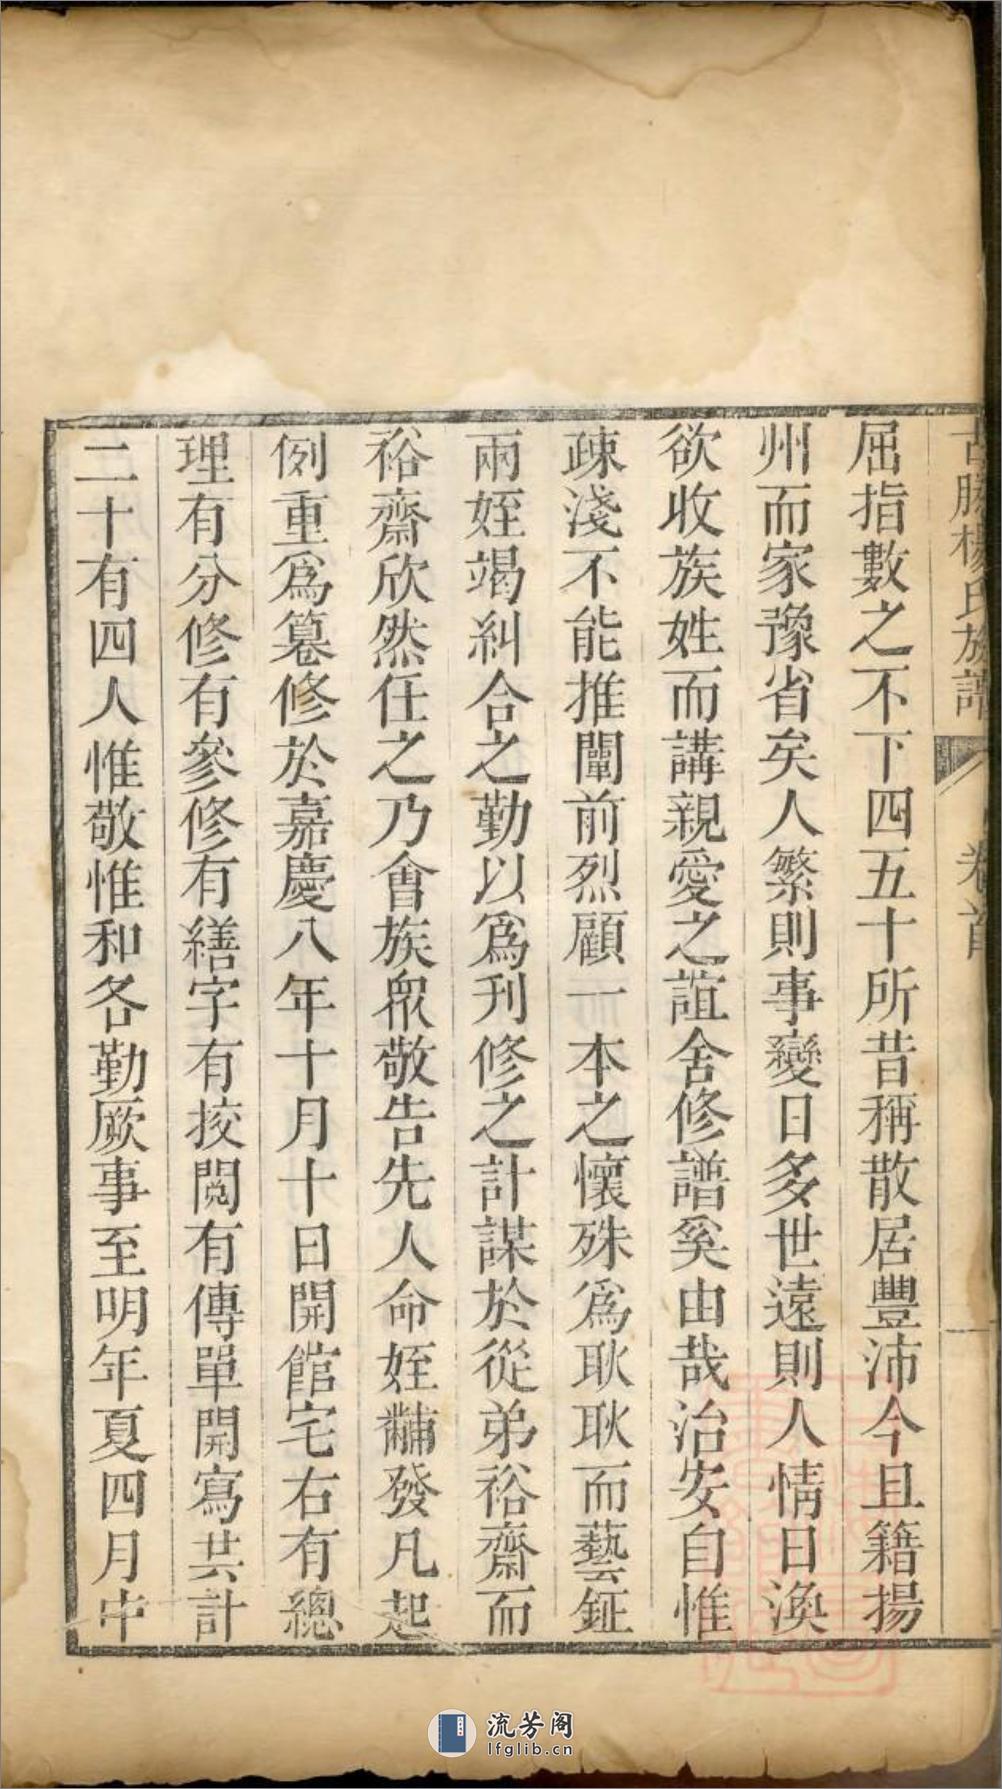 古勝楊氏族譜 卷首 一
屈指數之不下四五十所昔稱散居豐沛今且籍揚
州而家豫省矣人繁則事變日多世遠則人情日渙
欲收族姓而講親愛之誼舍修譜奚由哉治安自惟
疎淺不能推闡前烈顧一本之懷殊爲耿耿而藝鉦
兩姪竭糾合之勤以爲刊修之計謀於從弟裕齋而
裕齋欣然任之乃會族眾敬告先人命姪黼發凡起
例重爲篡修於嘉慶八年十月十日開館宅右有總
理有分修有參修有繕字有挍閱有傳單開寫共計
二十有四人惟敬惟和各勤厥事至明年夏四月中
流芳阁
lfglib.cn